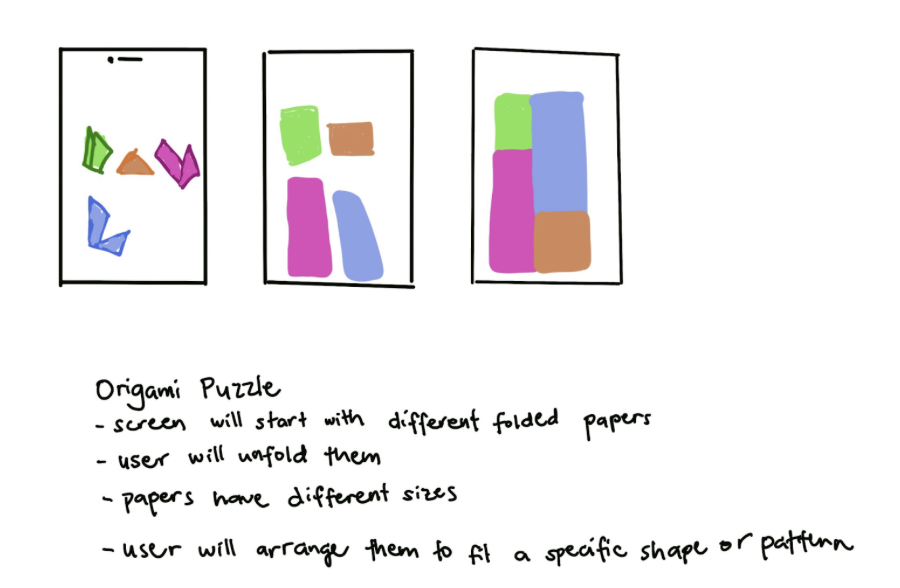 Origami Puzzle
- screen will start with different folded papers
- user will unfold them
- papers have different sizes
- user will arrange them to fit a specific shape or pattern